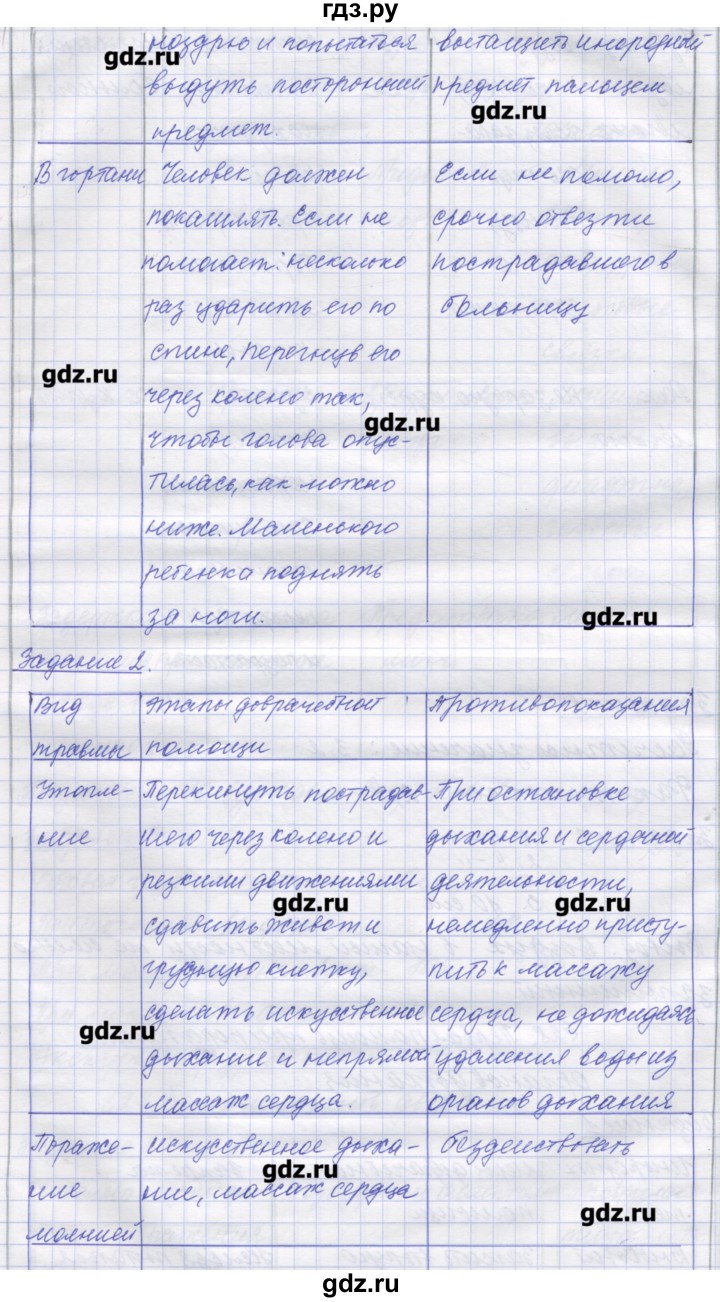 гдз.ру
ноздрю и попытаться
выдуть посторонний
предмет.
вытащить инородный
предмет пальцем
gdz.ru
gdz.ru
В гортани
Человек должен
покашлять. Если не
помогает: несколько
раз ударить его по
спине, перегнув его
через колено так,
чтобы голова опус-
тилась, как можно
ниже. Маленького
ребенка поднять
за ноги.
Если не помогло,
срочно отвезти
пострадавшего в
больницу
gdz.ru
gdz.ru
gdz.ru
Задание 2.
Вид
травмы
Этапы доврачебной
помощи
Противопоказания
Утопле-
ние
Перекинуть пострадав-
шего через колено и
резкими движениями
сдавить живот и
грудную клетку,
сделать искусственное
дыхание и непрямой
массаж сердца.
При остановке
дыхания и сердечной
деятельности,
немедленно присту-
пить к массажу
сердца, не дожидаясь
удаления воды из
органов дыхания
gdz.ru
gdz.ru
gdz.ru
Пораже-
ние
молнией
искусственное дыха-
ние, массаж сердца
бездействовать
gdz.ru
gdz.ru
gdz.ru